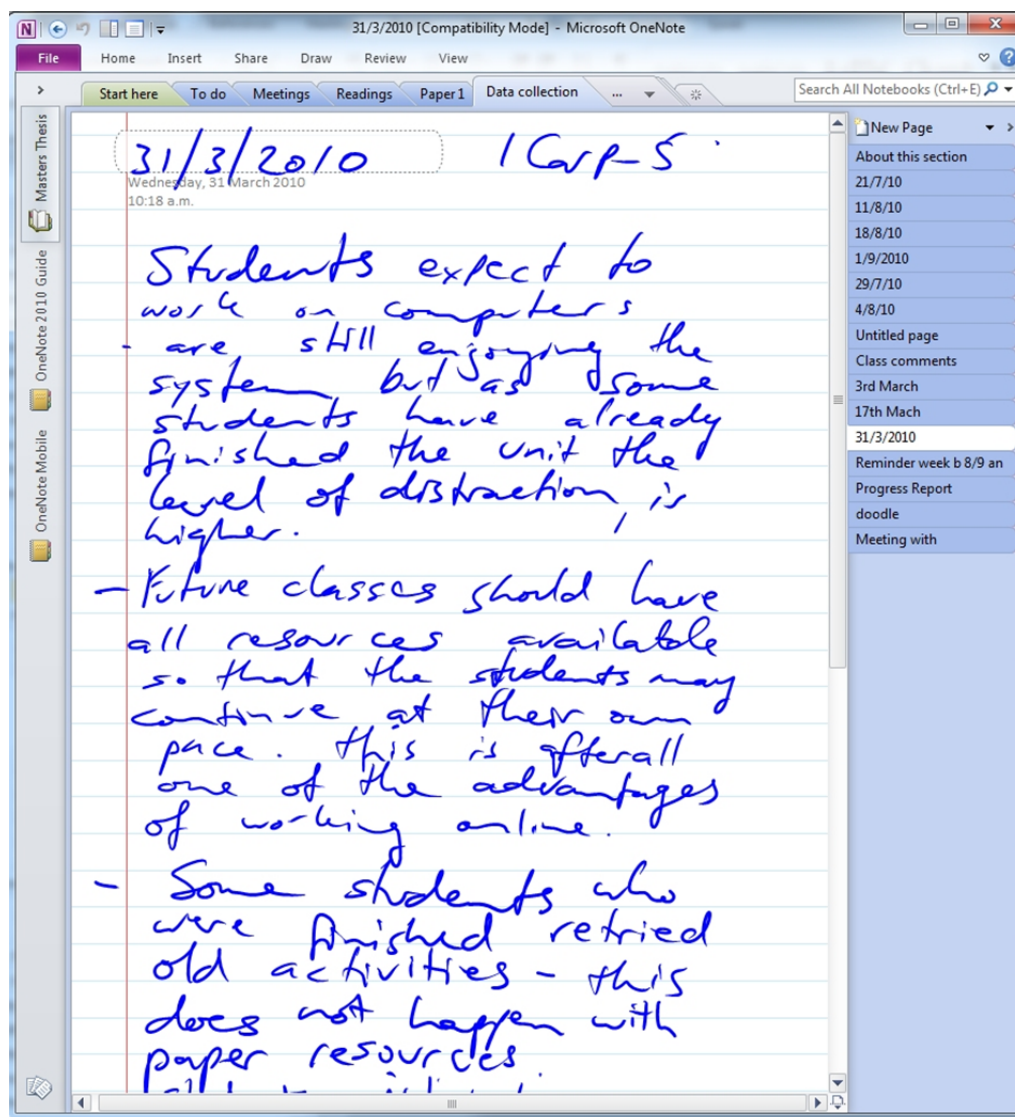 31/3/2010 [Compatibility Mode] - Microsoft OneNote
File Home Insert Share Draw Review View
Start here To do Meetings Readings Paper 1 Data collection ...
Search All Notebooks (Ctrl+E)
Masters Thesis
OneNote 2010 Guide
OneNote Mobile
31/3/2010
Wednesday, 31 March 2010
10:18 a.m.
Students expect to
work on computers
- are still enjoying the
system but as some
students have already
finished the unit the
level of distraction, is
higher.
- Future classes should have
all resources available
so that the students may
continue at their own
pace. this is afterall
one of the advantages
of working online.
- Some students who
were finished retried
old activities - this
does not happen with
paper resources.
New Page
About this section
21/7/10
11/8/10
18/8/10
1/9/2010
29/7/10
4/8/10
Untitled page
Class comments
3rd March
17th Mach
31/3/2010
Reminder week b 8/9 an
Progress Report
doodle
Meeting with